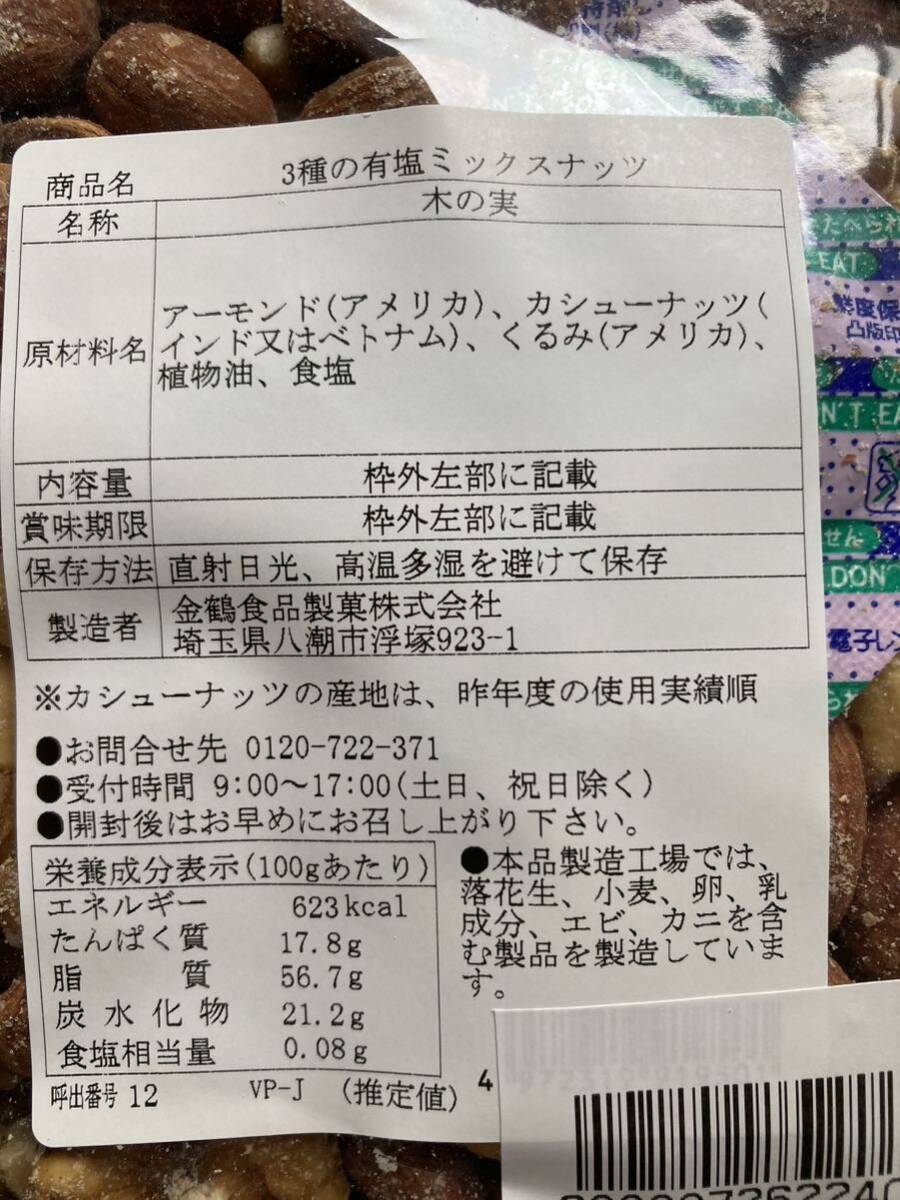 商品名 3種の有塩ミックスナッツ
名称 木の実
原材料名 アーモンド(アメリカ)、カシューナッツ(
インド又はベトナム)、くるみ(アメリカ)、
植物油、食塩
内容量 枠外左部に記載
賞味期限 枠外左部に記載
保存方法 直射日光、高温多湿を避けて保存
製造者 金鶴食品製菓株式会社
埼玉県八潮市浮塚923-1
※カシューナッツの産地は、昨年度の使用実績順
●お問合せ先 0120-722-371
●受付時間 9:00～17:00(土日、祝日除く)
●開封後はお早めにお召し上がり下さい。
栄養成分表示(100gあたり)
エネルギー 623kcal
たんぱく質 17.8g
脂質 56.7g
炭水化物 21.2g
食塩相当量 0.08g
呼出番号 12 VP-J (推定値)
●本品製造工場では、
落花生、小麦、卵、乳
成分、エビ、カニを含
む製品を製造していま
す。
4
たべられ
EAT
鮮度保
凸版印
N'T EA
せん
DON'
電子レン